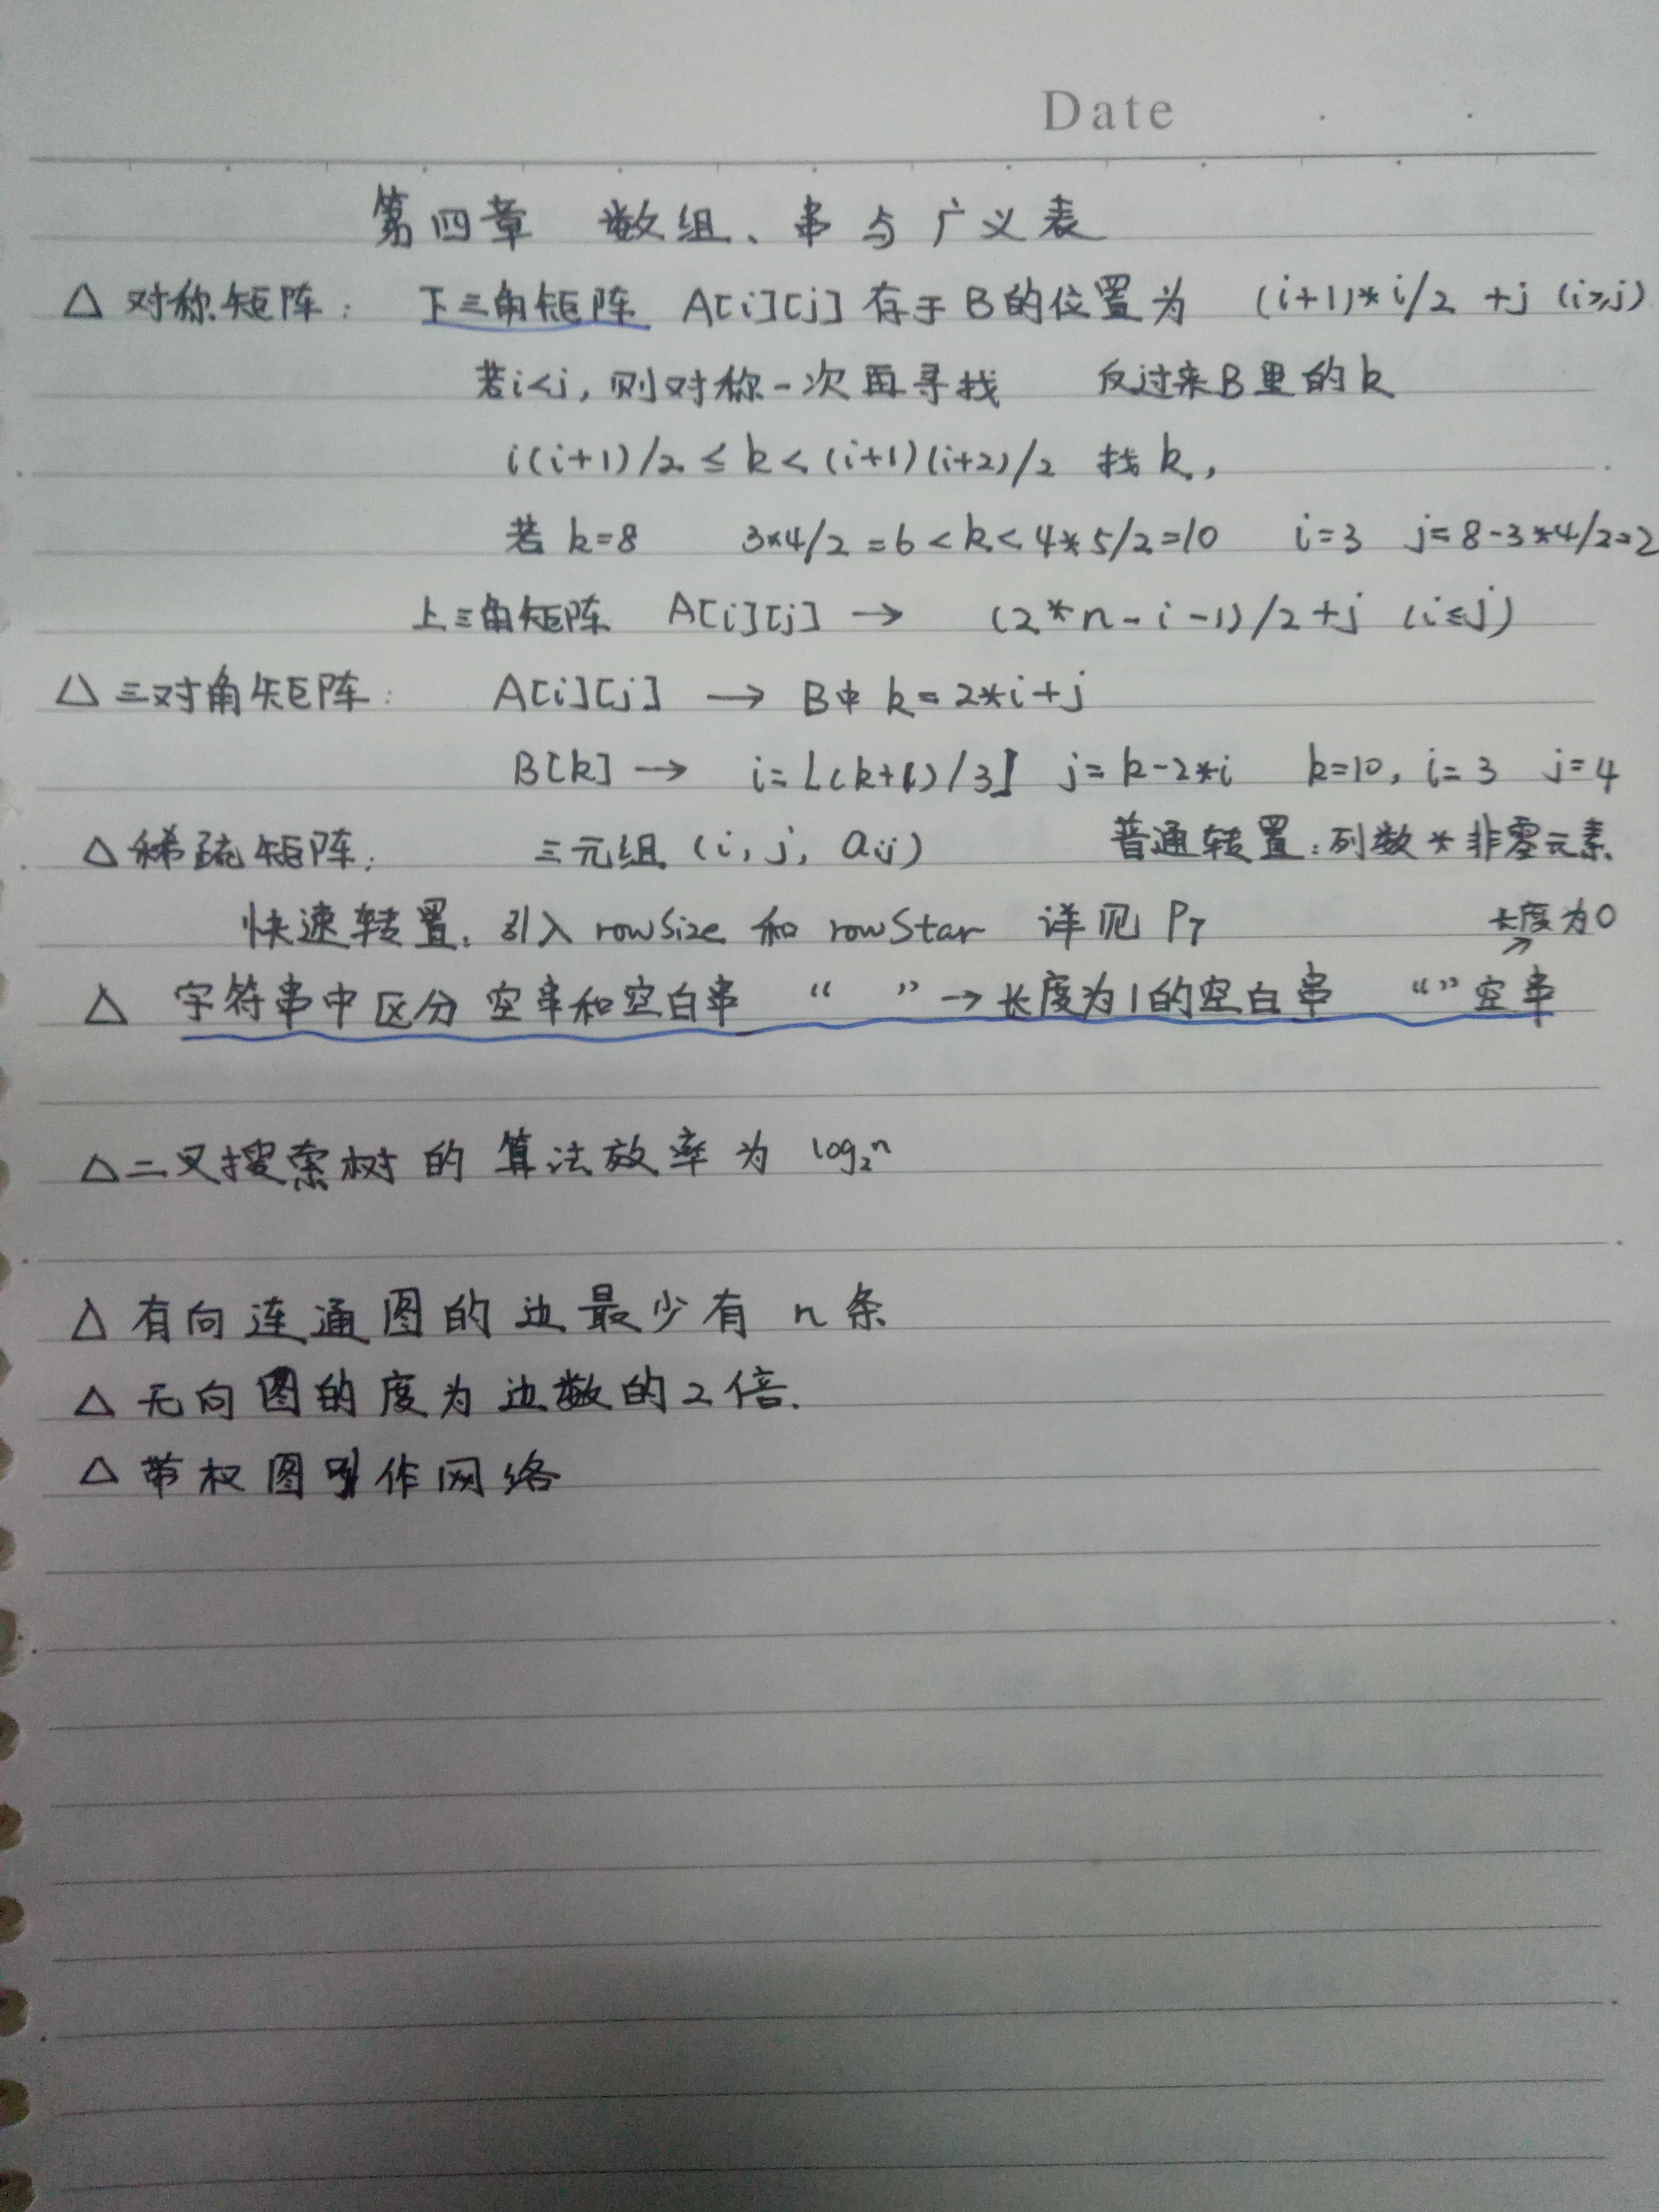 Date
第四章 数组、串与广义表
△ 对称矩阵: 下三角矩阵 A[i][j] 存于B的位置为 (i+1)*i/2 +j (i≥j)
若i<j, 则对称一次再寻找 反过来B里的k
i(i+1)/2 ≤ k < (i+1)(i+2)/2 找k,
若 k=8 3*4/2=6<k<4*5/2=10 i=3 j=8-3*4/2=2
上三角矩阵 A[i][j] → (2*n-i-1)/2+j (i≤j)
△ 三对角矩阵: A[i][j] → B中 k=2*i+j
B[k] → i=⌊(k+1)/3⌋ j=k-2*i k=10, i=3 j=4
△ 稀疏矩阵: 三元组 (i, j, aij) 普通转置:列数*非零元素
快速转置: 引入 rowSize 和 rowStar 详见 P7 长度为0
△ 字符串中区分 空串和空白串 “ ” → 长度为1的空白串 “” 空串
△ 二叉搜索树的 算法效率为 log₂n
△ 有向连通图的边最少有 n条
△ 无向图的度为边数的2倍.
△ 带权图 作网络